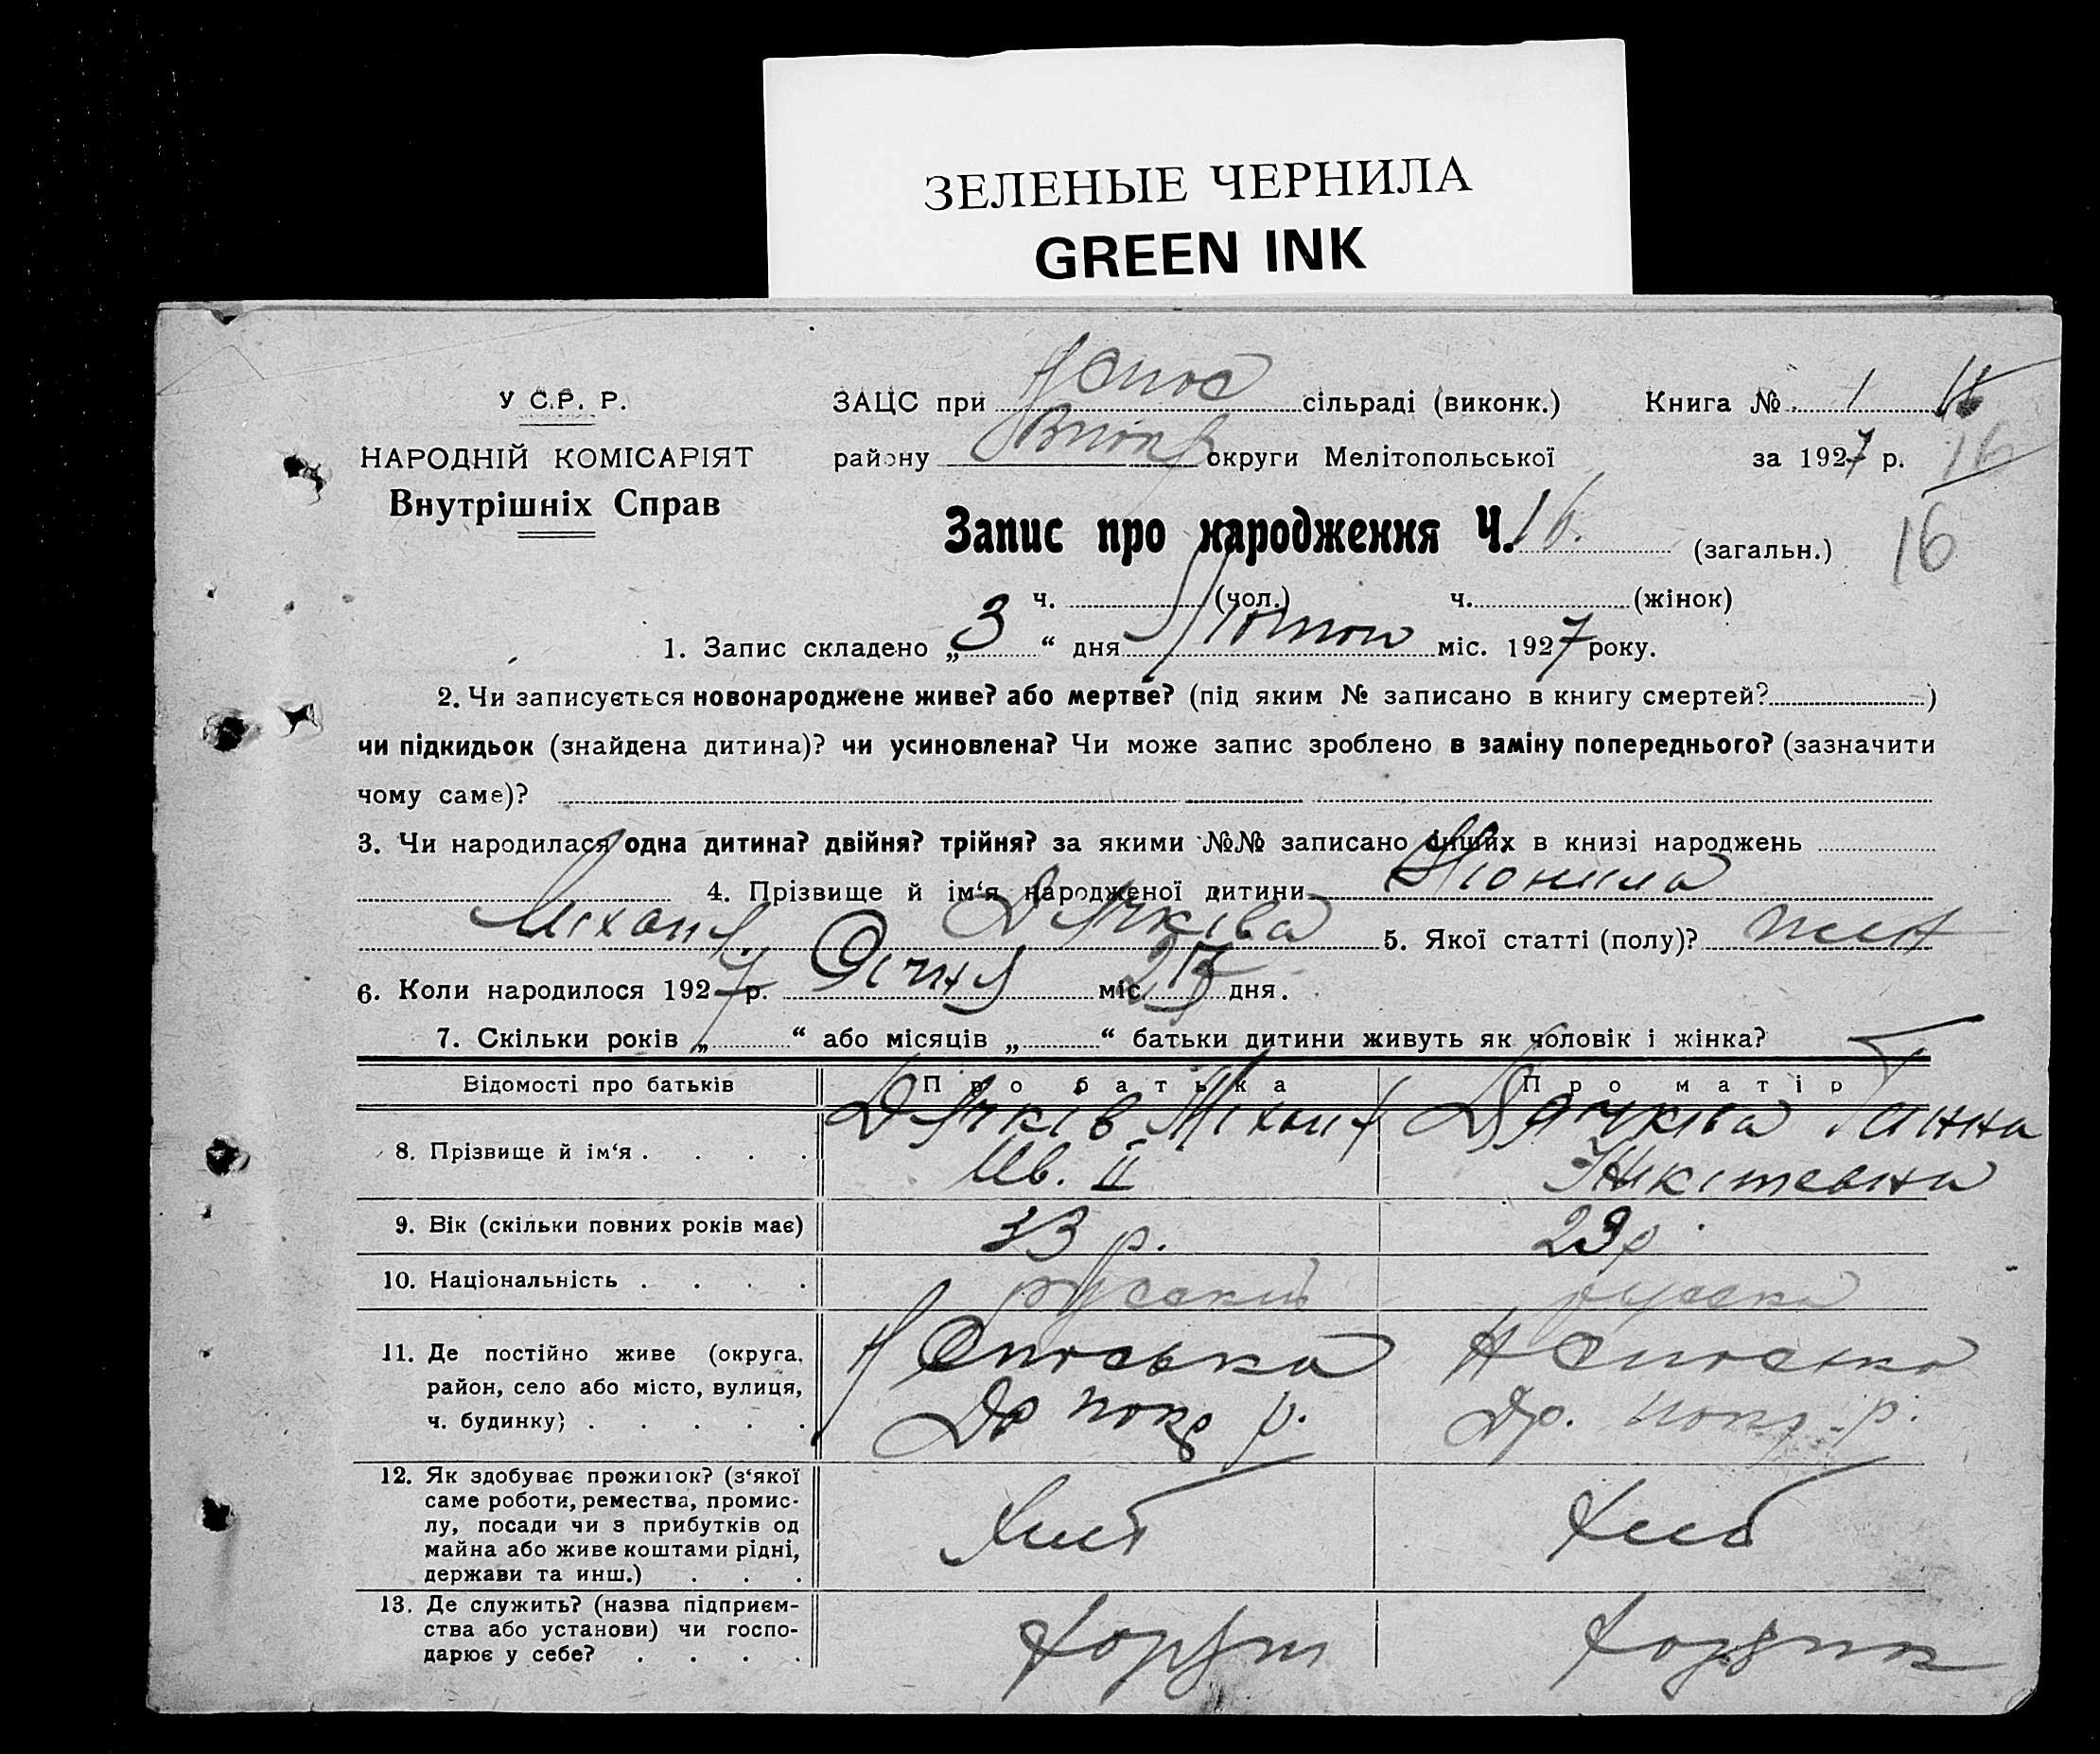 ЗЕЛЕНЫЕ ЧЕРНИЛА
GREEN INK
У С.Р. Р.
НАРОДНІЙ КОМІСАРІЯТ
Внутрішніх Справ
ЗАЦС при сільраді (виконк.) Книга № 1
району округи Мелітопольської за 1927 р. 16
Запис про народження Ч. 16. (загальн.) 16
ч. (чол.) ч. (жінок)
1. Запис складено „3“ дня Лютого міс. 1927 року.
2. Чи записується новонароджене живе? або мертве? (під яким № записано в книгу смертей? )
чи підкидьок (знайдена дитина)? чи усиновлена? Чи може запис зроблено в заміну попереднього? (зазначити
чому саме)?
3. Чи народилася одна дитина? двійня? трійня? за якими №№ записано інших в книзі народжень
4. Прізвище й ім‘я народженої дитини
Михайл. Дячківа 5. Якої статті (полу)? жін
6. Коли народилося 1927 р. Січня міс. дня.
7. Скільки років „ “ або місяців „ “ батьки дитини живуть як чоловік і жінка?
Відомості про батьків Про батька Про матір
8. Прізвище й ім‘я . . . . Дячків Міхаил Дячківа Ганна
Ив. II Нікітевна
9. Вік (скільки повних років має) 33 р. 29 р.
10. Національність . . . . руський руська
11. Де постійно живе (округа,
район, село або місто, вулиця,
ч. будинку) . . . . .
12. Як здобуває прожиток? (з‘якої
саме роботи, ремества, промис-
лу, посади чи з прибутків од
майна або живе коштами рідні,
держави та инш.) . . . Хліб Хліб
13. Де служить? (назва підприєм-
ства або установи) чи госпо-
дарює у себе? . . . .